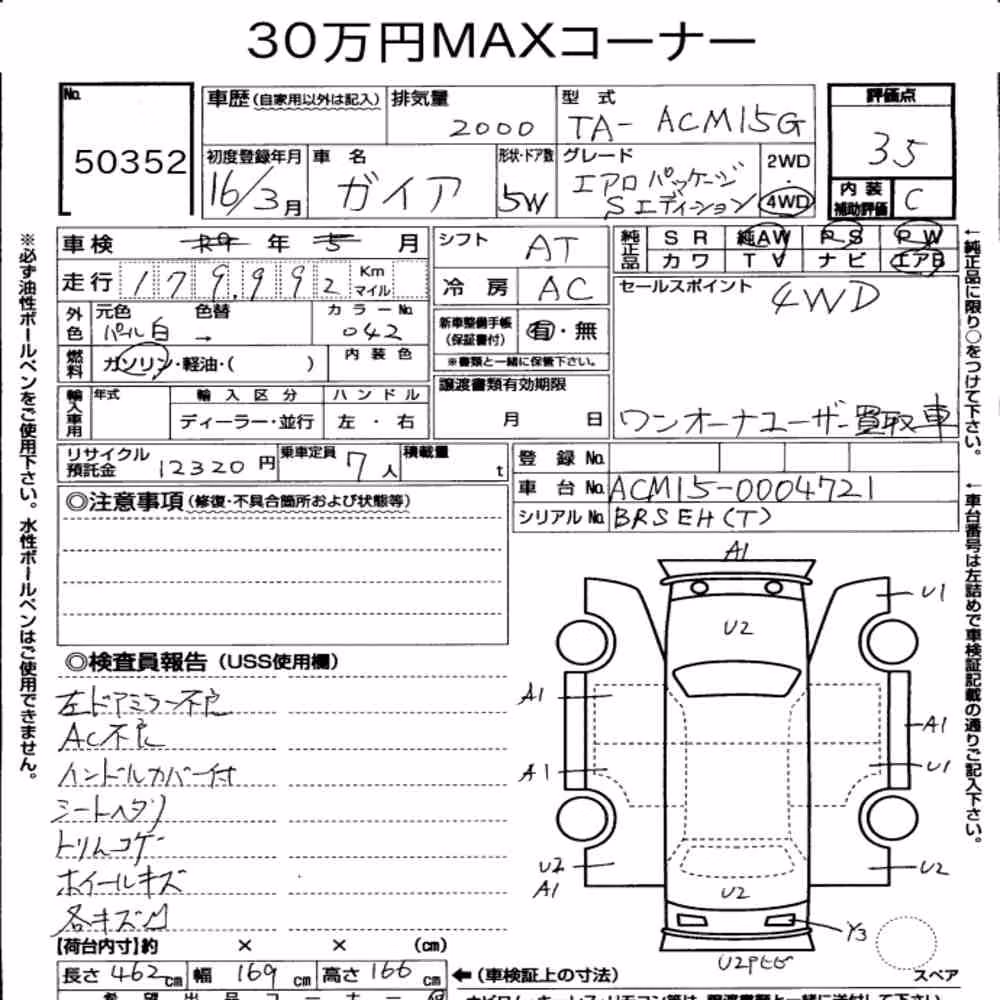 30万円MAXコーナー
No. 50352
車歴（自家用以外は記入）
排気量 2000
型式 TA- ACM15G
評価点 35
初度登録年月 16/3月
車名 ガイア
形状・ドア数 5W
グレード エアロパッケージ Sエディション
2WD・4WD
内装補助評価 C
車検 年 5 月
シフト AT
純正品 SR 純AW PS PW
カワ TV ナビ エアB
走行 179,992 Km マイル
冷房 AC
セールスポイント 4WD
ワンオーナユーザー買取車
外色 元色 パール白 色替 → カラーNo. 042
新車整備手帳（保証書付） 有・無
※書類と一緒に保管下さい。
燃料 ガソリン・軽油・( ) 内装色
譲渡書類有効期限 月 日
輸入車用 年式 輸入区分 ハンドル
ディーラー・並行 左・右
リサイクル預託金 12320円 乗車定員 7人 積載量 t
登録No.
車台No. ACM15-0004721
シリアルNo. BRSEH(T)
◎注意事項（修復・不具合箇所および状態等）
◎検査員報告（USS使用欄）
左ドアミラー不良
AC不良
ハンドルカバー付
シートヘタリ
トリムコゲ
ホイールキズ
各キズ凹
A1
U2
U1
A1
A1
A1
U1
U2
A1
U2
U2
Y3
スペア
【荷台内寸】約 × × (cm)
長さ 462cm 幅 169cm 高さ 166cm ←（車検証上の寸法）
希望出品コーナー
※必ず油性ボールペンをご使用下さい。水性ボールペンはご使用できません。
←純正品に限り○をつけて下さい。
←車台番号は左詰めで車検証記載の通りご記入下さい。